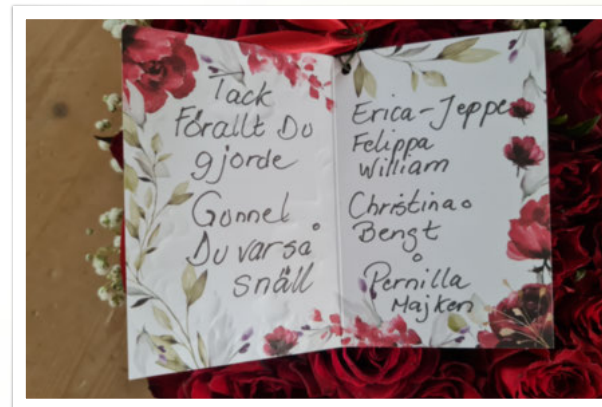 Tack
Förallt Du
gjorde
Gunnel
Du var så
snäll
Erica-Jeppe
Felippa
William
Christina o
Bengt
o
Pernilla
Majken